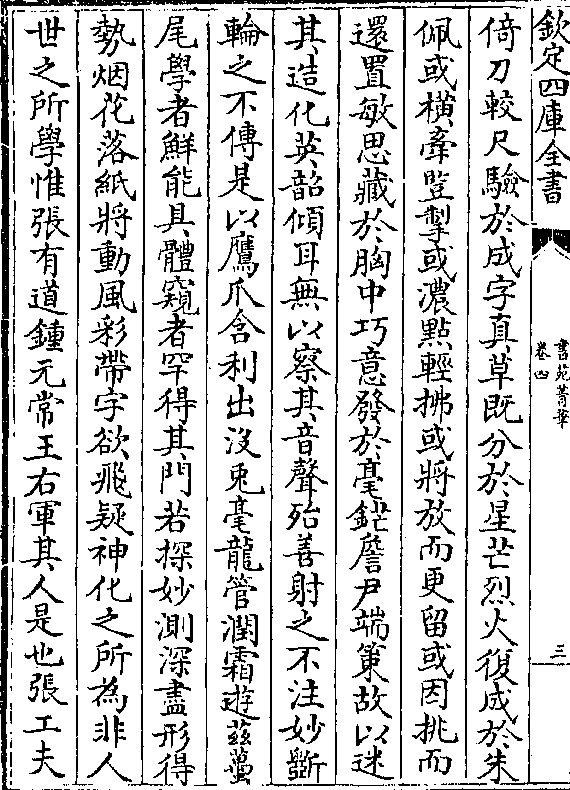 欽定四庫全書
書苑菁華
卷四
三
倚刀較尺驗於成字真草既分於星芒烈火復成於朱
佩或橫牽豎掣或濃點輕拂或將放而更留或因挑而
還置敏思藏於胸中巧意發於毫鋩詹尹端策故以迷
其造化英韶傾耳無以察其音聲殆善射之不注妙斵
輪之不傳是以鷹爪含利出沒兎毫龍管潤霜遊茲蠆
尾學者鮮能具體窺者罕得其門若探妙測深盡形得
勢烟花落紙將動風彩帶字欲飛疑神化之所為非人
世之所學惟張有道鍾元常王右軍其人是也張工夫